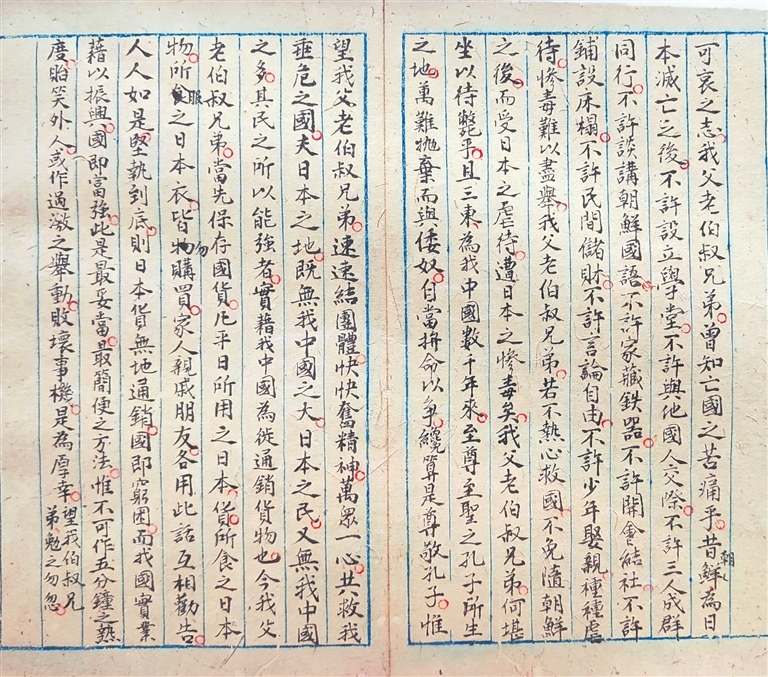 可哀之志我父老伯叔兄弟曾知亡國之苦痛乎昔朝鮮為日
本滅亡之後不許設立學堂不許與他國人交際不許三人成群
同行不許談講朝鮮國語不許家藏鉄器不許開會結社不許
鋪設床榻不許民間儲財不許言論自由不許少年娶親種種虐
待慘毒難以盡舉我父老伯叔兄弟若不熱心救國不免隨朝鮮
之後而受日本之虐待遭日本之慘毒矣我父老伯叔兄弟何堪
坐以待斃乎且三東為我中國數千年來至尊至聖之孔子所生
之地萬難拋棄而與倭奴自當拚命以爭纔算是尊敬孔子惟
望我父老伯叔兄弟速速結團體快快奮精神萬眾一心共救我
垂危之國夫日本之地既無我中國之大日本之民又無我中國
之多其民之所以能強者實藉我中國為從通銷貨物也今我父
老伯叔兄弟當先保存國貨凡平日所用之日本貨所食之日本
物所服之日本衣皆勿購買家人親戚朋友各用此話互相勸告
人人如是堅執到底則日本貨無地通銷國即窮困而我國實業
藉以振興國即富強此是最妥當最簡便之方法惟不可作五分鐘之熱
度貽笑外人或作過激之舉動敗壞事機是為厚幸望我伯叔兄
弟勉之勿忽